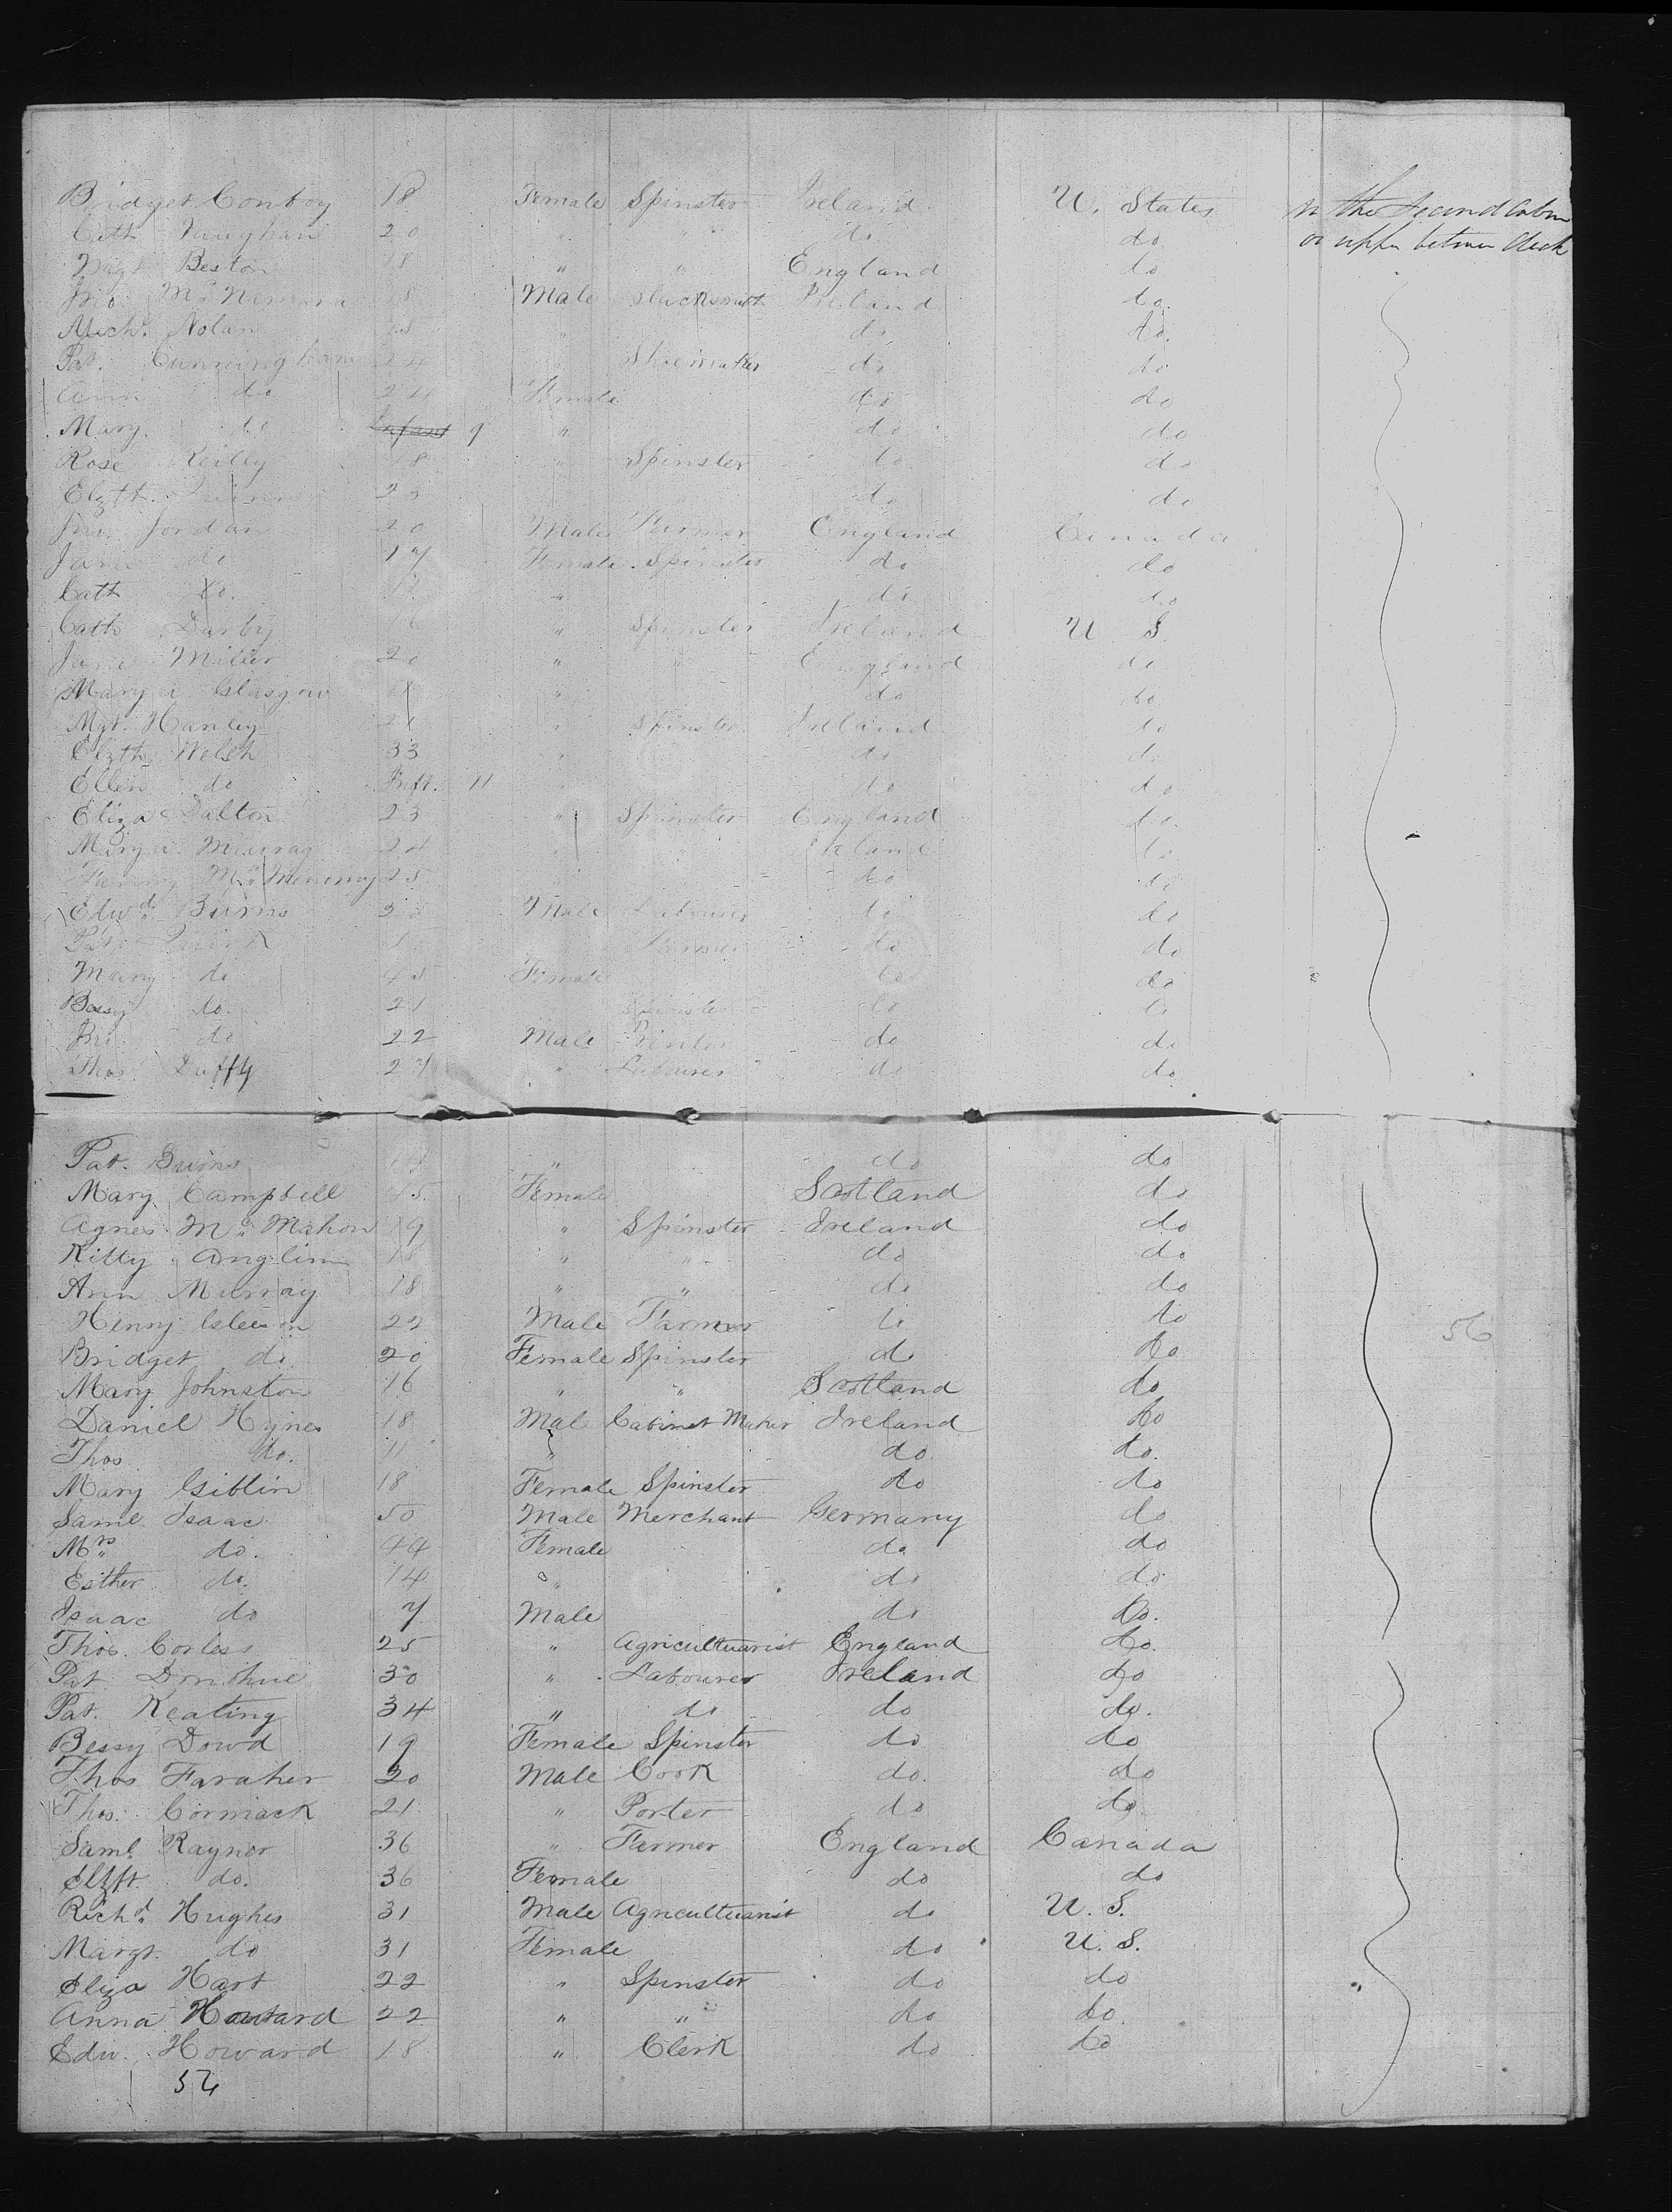 Bridget Conboy 18 Female Spinster Ireland U. States in the Second Cabin
Cath Vaughan 20 " " do do or upper between deck
Mgt Beston 18 " " England do
Jno. McNemara 18 Male Blacksmith Ireland do.
Michl. Nolan " do do.
Pat. Cunningham 24 " Shoemaker do do
Ann do 24 Female do do
Mary do Infant 9 " do do
Rose Reilly 18 " Spinster do do
Elzth. do do
Jno. Jordan 20 Male Farmer England Canada
Jane do 17 Female Spinster do do
Cath do. " do do
Cath Darby 16 " Spinster Ireland U S.
Jane Milier 20 " " England do
Mary A Glasgow " do do
Mgt. Hanley 21 " Spinster Ireland do
Elzth Welsh 33 " do do
Ellen do Inft. 11 " do do
Eliza Dalton 23 " Spinster England do
Mary A Murray 24 " Ireland do
Fanny 25 " do do
Edwd. Burns 20 Male Labourer do do
Pat Quirk Farmer do do
Mary do 45 Female do do
Bessy do. 21 Spinster do do
Jno do 22 Male do do
Thos. Duffy 27 " Labourer do do
Pat. Burns " do do
Mary Campbell 45 Female Scotland do
Agnes McMahon 19 " Spinster Ireland do
Kitty Anglim 18 " " do do
Ann Murray 18 " " do do
Henry Gleeson 22 Male Farmer do do 56
Bridget do. 20 Female Spinster do do
Mary Johnston 16 " " Scotland do
Daniel Hynes 18 Male Cabinet Maker Ireland do
Thos do. 11 " do. do.
Mary Giblin 18 Female Spinster do do
Saml. Isaac 50 Male Merchant Germany do
Mrs. do. 44 Female do do
Esther do. 14 " do do
Isaac do 7 Male do do.
Thos. Corless 25 " Agricultuarist England do.
Pat Donohue 30 " Labourer Ireland do
Pat. Keating 34 " do do do.
Bessy Dowd 19 Female Spinster do do
Thos Faraher 20 Male Cook do. do
Thos. Cormack 21 " Porter do do
Saml. Raynor 36 " Farmer England Canada
Elzth. do. 36 Female do do
Richd. Hughes 31 Male Agricultuarist do U. S.
Margt. do 31 Female do U. S.
Eliza Hart 22 " Spinster do do
Anna Howard 22 " " do do.
Edw. Howard 18 " Clerk do do
56